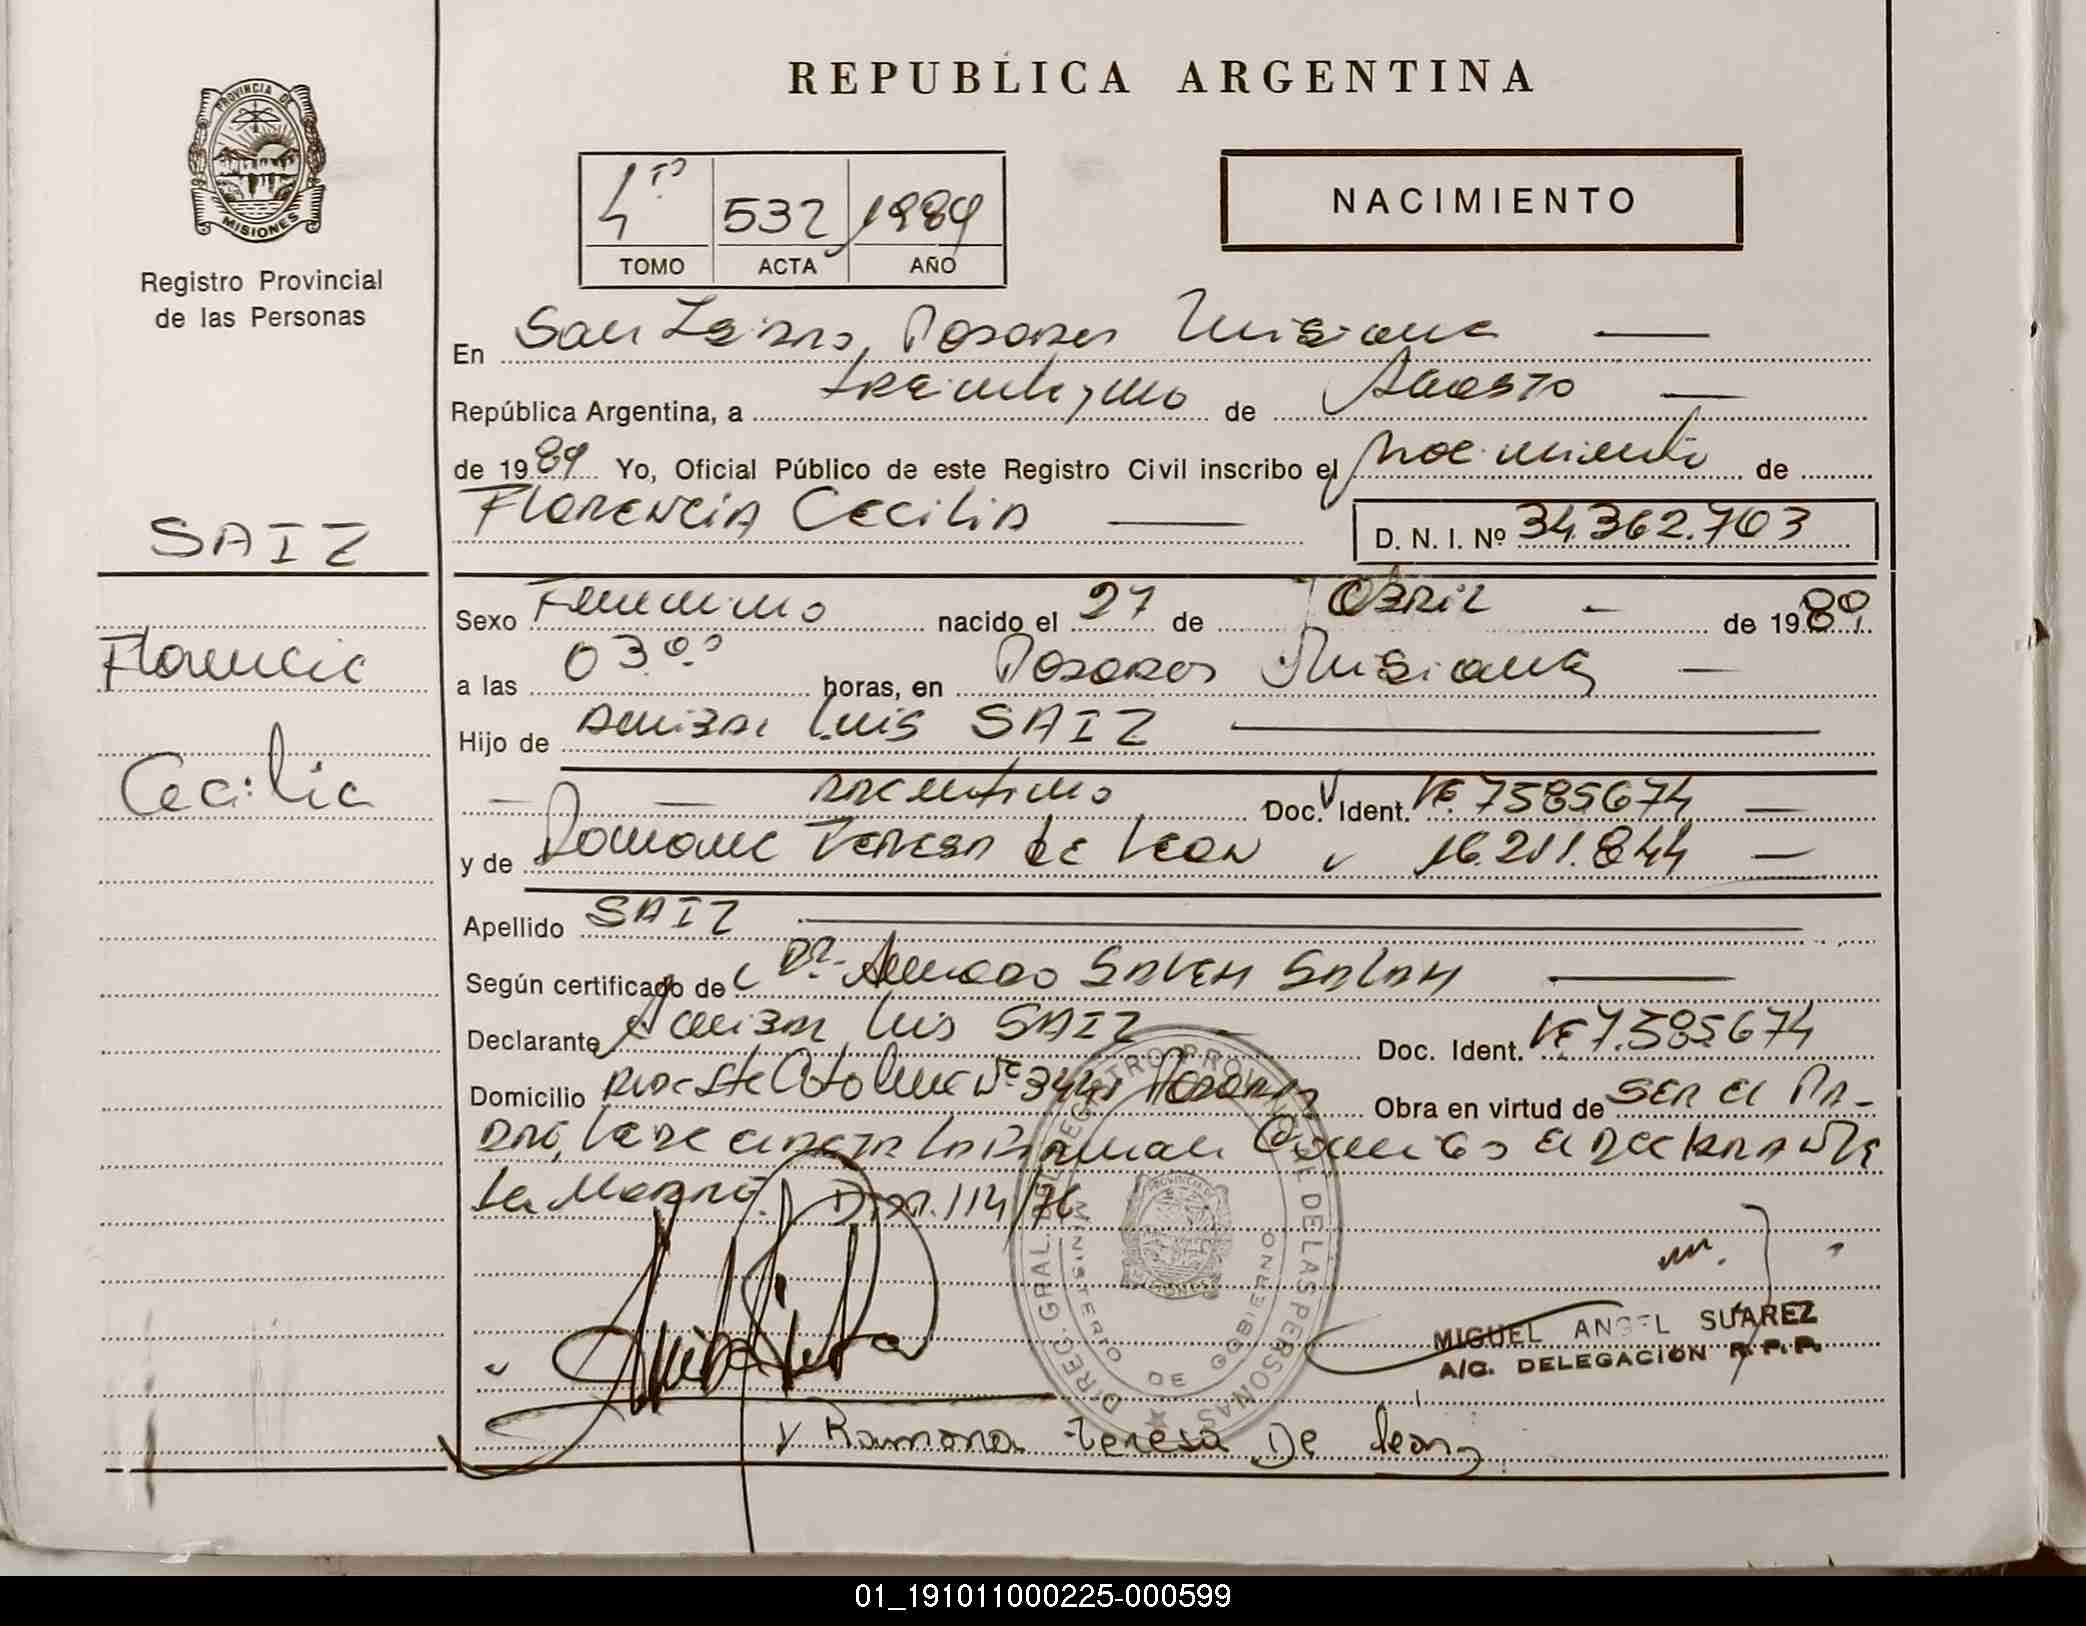 REPUBLICA ARGENTINA
PROVINCIA DE
MISIONES
Registro Provincial
de las Personas
4to 532 1989
TOMO ACTA AÑO
NACIMIENTO
En Posadas Misiones
República Argentina, a treinta y uno de Agosto
de 1989 Yo, Oficial Público de este Registro Civil inscribo el nacimiento de
Florencia Cecilia D. N. I. Nº 34.362.703
SAIZ
Florencia
Cecilia
Sexo Femenino nacido el 27 de Abril de 1989
a las 03.00 horas, en Posadas Misiones
Hijo de Anibal Luis SAIZ
argentino Doc. Ident. LE 7585674
y de Ramona Teresa de Leon 16.211.844
Apellido SAIZ
Según certificado de Dr. Amado SALEM SALAM
Declarante Anibal Luis SAIZ Doc. Ident. LE 7.585674
Domicilio Posadas Obra en virtud de SER el PA-
DRE, Lee el acta la firman Conmigo el declarante
La Madre. 114/76
DIREC. GRAL. DEL REGISTRO PROVINCIAL DE LAS PERSONAS
MINISTERIO DE GOBIERNO
MIGUEL ANGEL SUAREZ
A/C. DELEGACIÓN R.P.P.
Ramona Teresa De León
01_191011000225-000599